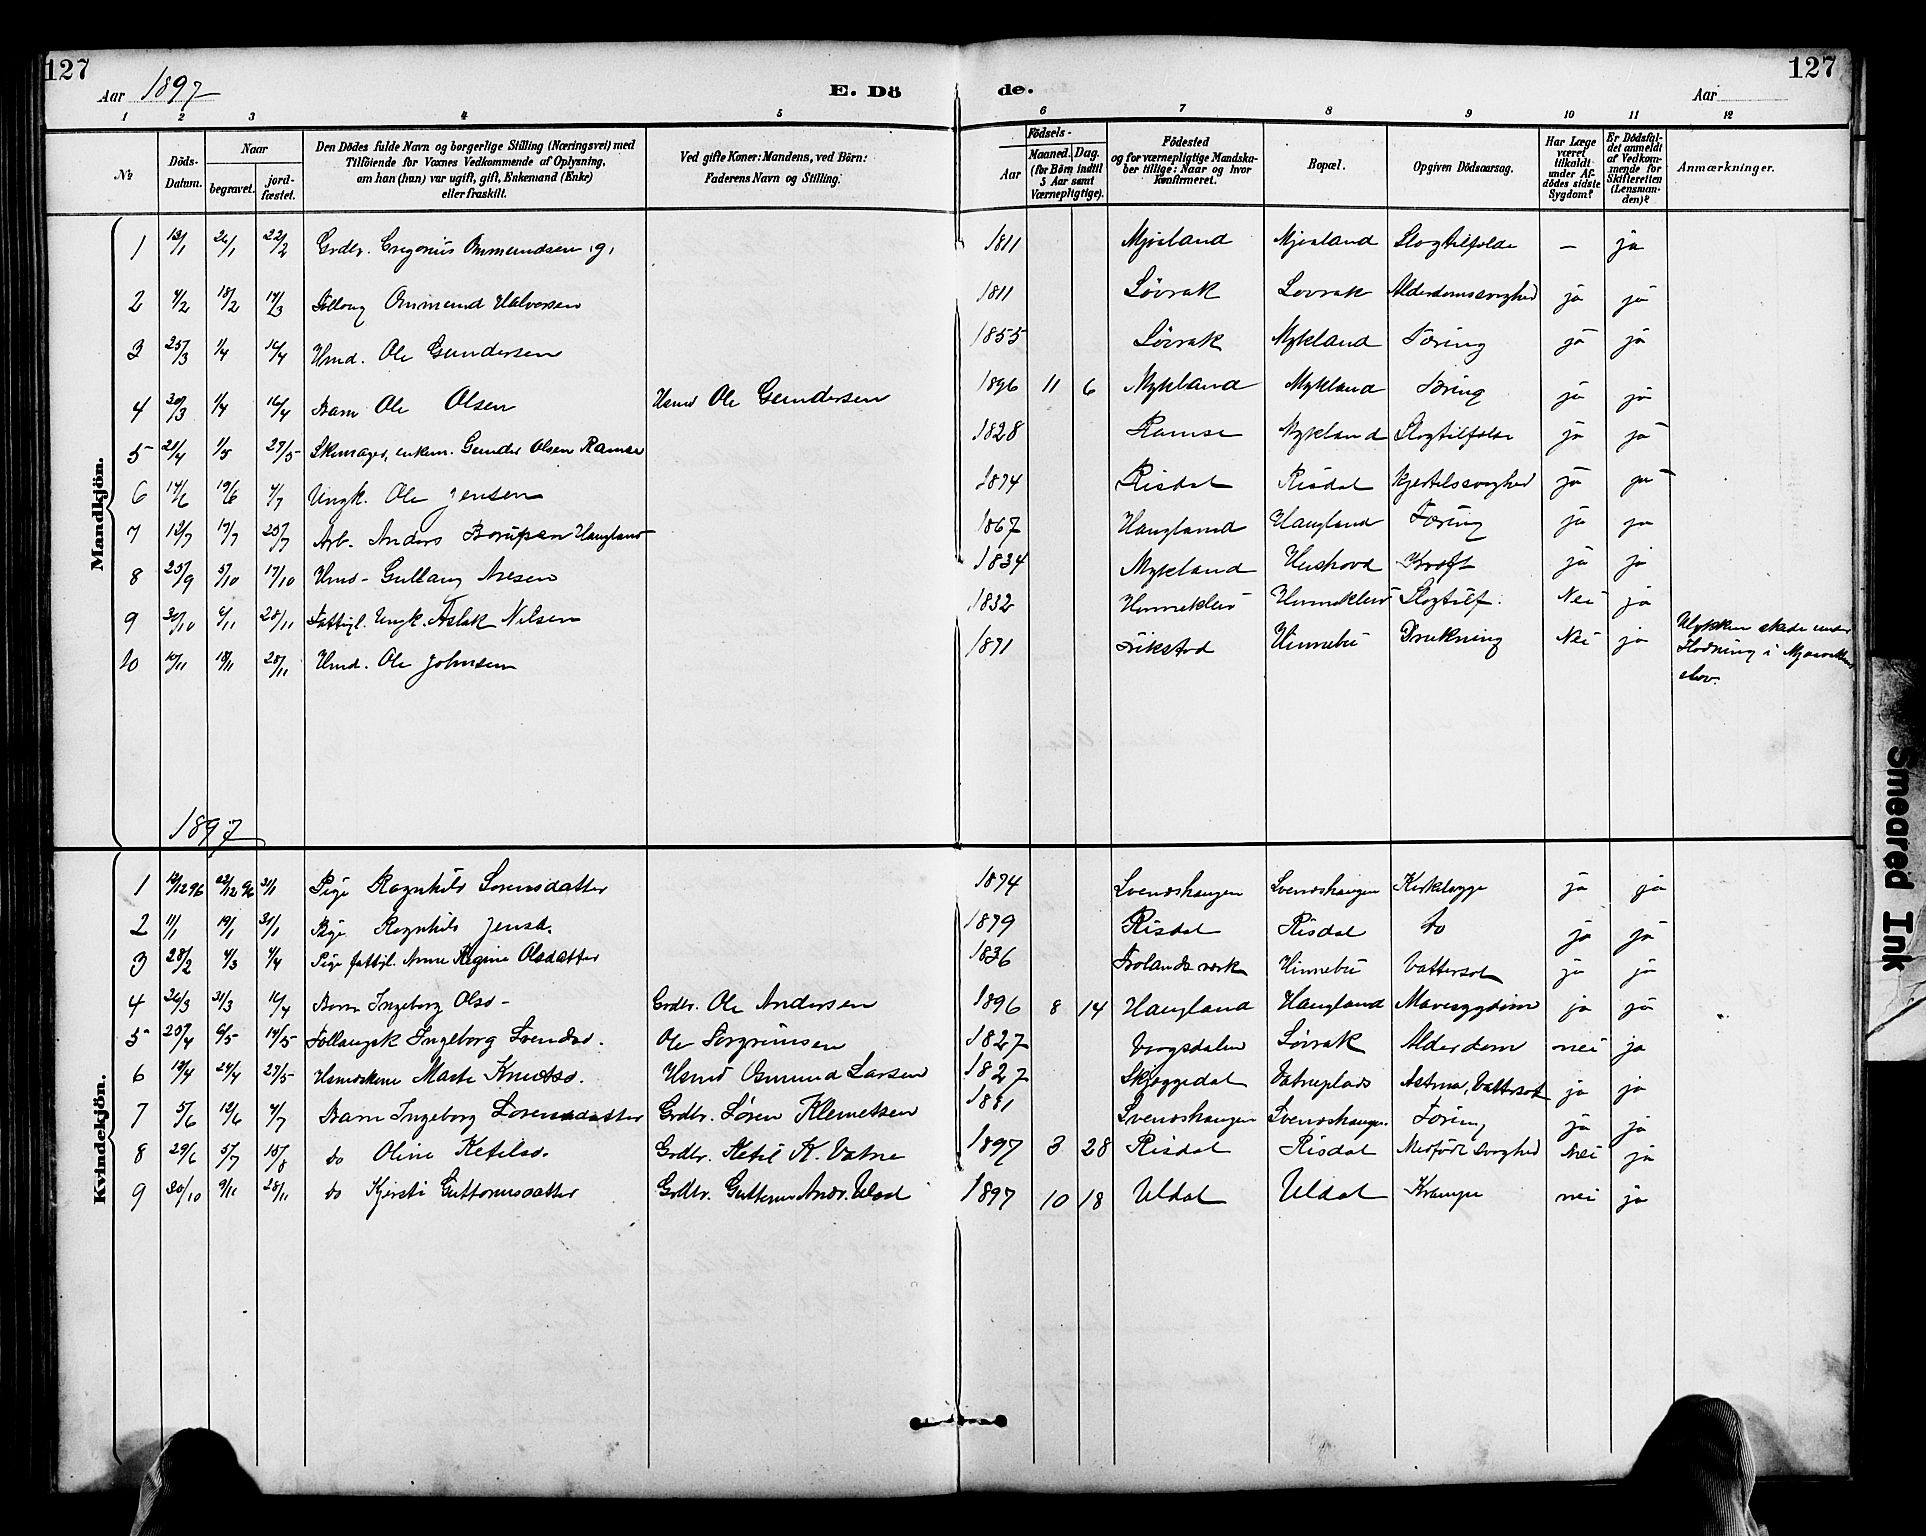 127
127
Aar 1897
E. Dö de.
Aar
1 2 3 4 5 6 7 8 9 10 11 12
No
Döds-Datum.
Naar begravet. jordfæstet.
Den Dödes fulde Navn og borgerlige Stilling (Næringsvei) med Tilföiende for Voxnes Vedkommende af Oplysning, om han (hun) var ugift, gift, Enkemand (Enke) eller fraskilt.
Ved gifte Koner: Mandens, ved Börn: Faderens Navn og Stilling.
Födsels- Aar Maaned. Dag. (for Börn indtil 5 Aar samt Værnepligtige).
Födested og for værnepligtige Mandskaber tillige: Naar og hvor Konfirmeret.
Bopæl.
Opgiven Dödsaarsag.
Har Læge været tilkaldt under Afdödes sidste Sygdom?
Er Dödsfaldet anmeldt af Vedkommende for Skifteretten (Lensmanden)?
Anmærkninger.
Mandkjön.
1 13/1 26/1 22/2 Grdbr. Gregorius Ommundsen, g, 1811 Mjøsland Mjøsland Slagtilfælde – ja
2 4/2 18/2 14/3 Follaug Ommund Halvorsen 1811 Løvrak Løvrak Alderdomssvaghed ja ja
3 25/3 1/4 16/4 Hmd. Ole Gundersen 1855 Løvrak Mykland Tæring ja ja
4 30/3 1/4 16/4 Barn Ole Olsen Hsmd Ole Gundersen 1896 11 6 Mykland Mykland Tæring ja ja
5 21/4 1/5 27/5 Skomager, enkem. Gunder Olsen Ramse 1828 Ramse Mykland Slagtilfælde ja ja
6 14/6 19/6 4/7 Ungk. Ole Jensen 1874 Risdal Risdal Hjertesvaghed ja ja
7 12/7 17/7 25/7 Arb. Anders Haugland 1867 Haugland Haugland Tæring ja ja
8 25/9 5/10 17/10 Hmd. Gullaug Aresen 1834 Mykland Heshovd Kræft ja ja
9 30/10 6/11 28/11 Fattigl. Ungk. Aslak Nilsen 1832 Hinneklev Hinneklev Slagtilf. Nei ja
10 10/11 18/11 28/11 Hmd. Ole Johnsen 1871 Hinnebu Drukning Nei ja Ulykken skede under Flødning i
1897
Kvindekjön.
1 12 96 12 96 3/1 Pige Ragnhild Sørensdatter 1874 Svendshaugen Svendshaugen ja ja
2 11/1 19/1 31/1 Pige Ragnhild Jensd. 1879 Risdal Risdal do ja ja
3 28/2 4/3 4/4 Pige fattigl. Anne Regine Olsdatter 1836 Frolands verk Hinnebu Vattersot ja ja
4 26/3 31/3 16/4 Barn Ingeborg Olsd. Grdbr. Ole Andersen 1896 8 14 Haugland Haugland Mavesygdom ja ja
5 25/4 6/5 14/5 Ingeborg Svendsd. Ole Torgrimsen 1827 Vaagsdalen Løvrak Alderdom nei ja
6 13/4 24/4 27/5 Husmkone Marte Knutsd. Hsmd Omund Larsen 1827 Skjeggedal Vatneplads Astma, Vattersot ja ja
7 5/6 12/6 4/7 Barn Ingeborg Sørensdatter Grdbr. Søren Klemetsen 1881 Svendshaugen Svendshaugen Tæring ja ja
8 29/6 5/7 15/8 do Oline Ketilsd. Grdbr. Ketil K. Vatne 1897 3 28 Risdal Risdal Medfödt svaghed Nei ja
9 30/10 9/11 28/11 do Kjersti Guttormsdatter Grdbr. Guttorm Andr. Uldal 1897 10 18 Uldal Uldal Krampe nei ja
Smeared Ink